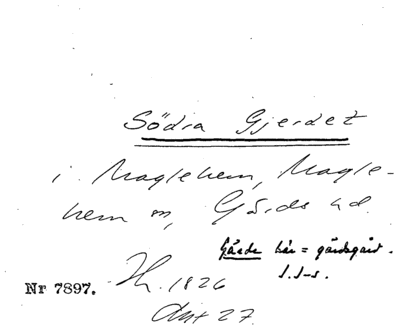 Södra Gjerdet
i Maglehem, Magle-
hem sn, Gärds hd.
Gärde här = gärdsgård.
S.J-s.
Nr 7897. Jh. 1826
Akt 27